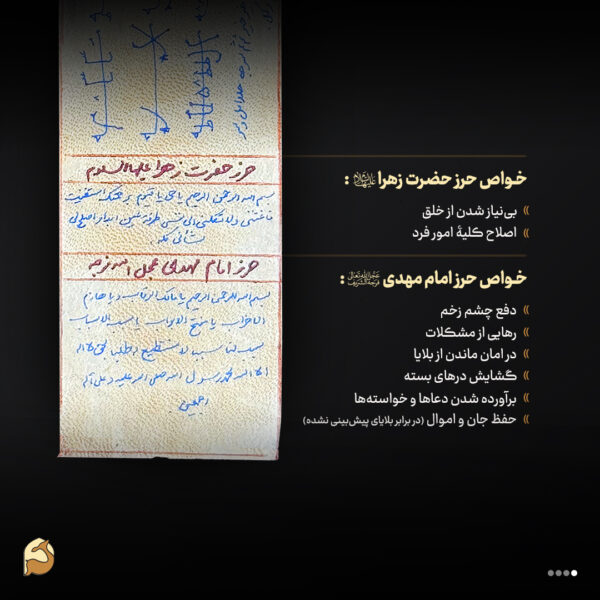 خواص حرز حضرت زهرا علیها‌السلام :
بی‌نیاز شدن از خلق
اصلاح کلیهٔ امور فرد
خواص حرز امام مهدی عجل‌الله‌تعالی فرجه‌الشریف :
دفع چشم زخم
رهایی از مشکلات
در امان ماندن از بلایا
گشایش درهای بسته
برآورده شدن دعاها و خواسته‌ها
حفظ جان و اموال (در برابر بلایای پیش‌بینی نشده)
حرز حضرت زهرا علیها السلام
بسم الله الرحمن الرحیم یا حی یا قیوم برحمتک استغیث
فاغثنی ولا تکلنی الی نفسی طرفة عین ابدا و اصلح لی
شأنی کله
حرز امام مهدی عجل الله فرجه
بسم الله الرحمن الرحیم یا مالک الرقاب و یا هازم
الاحزاب یا مفتح الابواب یا مسبب الاسباب
سبب لنا سببا لا نستطیع له طلبا بحق لا اله
الا الله محمد رسول الله صلی الله علیه و علی آله
اجمعین